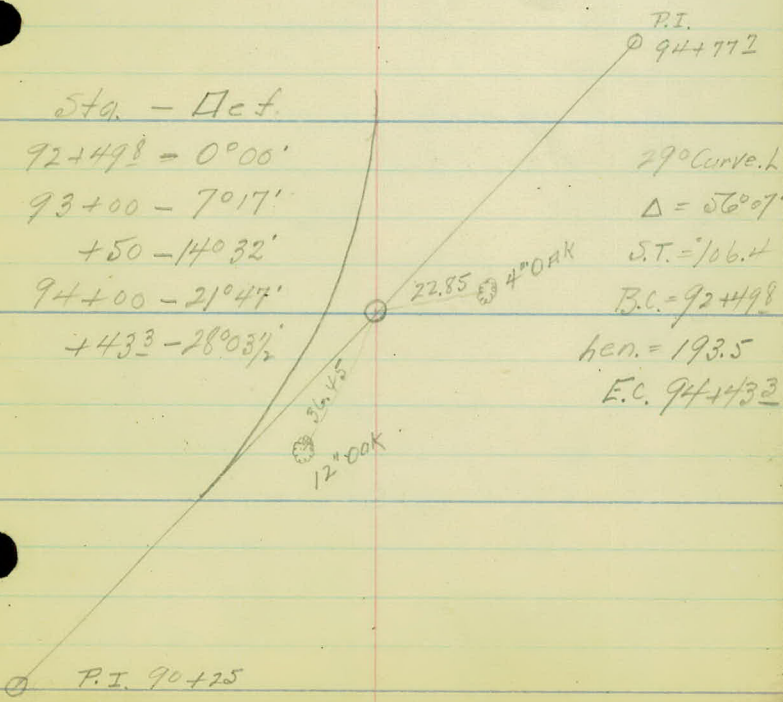 P.I.
94+77 2
Sta. — Def.
92+49 8 = 0°00'
93+00 — 7°17'
+50 — 14°32'
94+00 — 21°47'
+43 3 — 28°03½'
29° Curve. L
Δ = 56°07'
S.T. = 106.4
B.C. = 92+49 8
Len. = 193.5
E.C. 94+43 3
22.85
4" OAK
36.45
12" OAK
P.I. 90+25